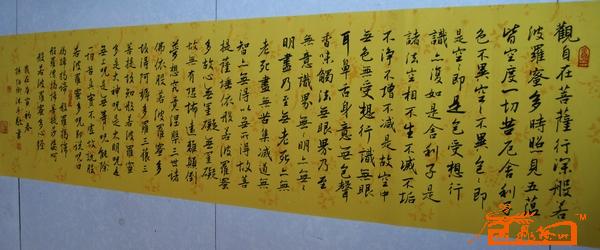 觀自在菩薩行深般若
波羅蜜多時照見五蘊
皆空度一切苦厄舍利子
色不異空空不異色色即
是空空即是色受想行
識亦復如是舍利子是
諸法空相不生不滅不垢
不淨不增不減是故空中
無色無受想行識無眼
耳鼻舌身意無色聲
香味觸法無眼界乃至
無意識界無無明亦無無
明盡乃至無老死亦無
老死盡無苦集滅道無
智亦無得以無所得故菩
提薩埵依般若波羅蜜
多故心無罣礙無罣礙
故無有恐怖遠離顛倒
夢想究竟涅槃三世諸
佛依般若波羅蜜多
故得阿耨多羅三藐三
菩提故知般若波羅蜜
多是大神咒是大明咒是
無上咒是無等等咒能除
一切苦真實不虛故說般
若波羅蜜多咒即說咒曰
揭諦揭諦 般羅揭諦
般羅僧揭諦菩提娑婆訶
般若波羅蜜多心經